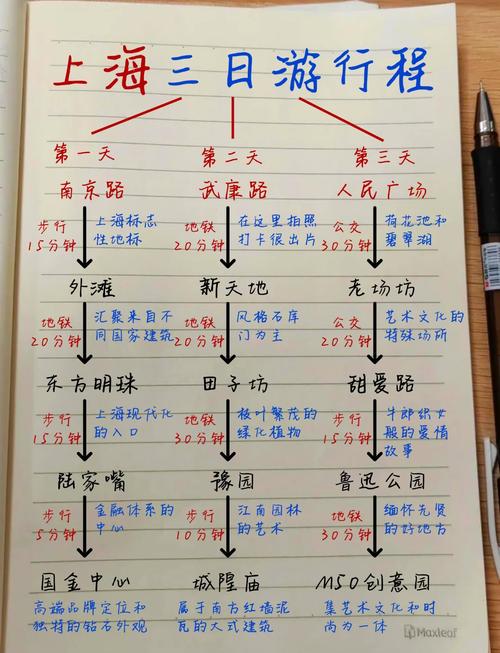 上海三日游行程
第一天
南京路
步行
15分钟
上海标志
性地标
外滩
地铁
20分钟
汇聚来自不
同国家建筑
东方明珠
步行
15分钟
上海现代化
的入口
陆家嘴
步行
5分钟
金融体系的
中心
国金中心
高端品牌定位和
独特的钻石外观
第二天
武康路
地铁
20分钟
在这里拍照
打卡很出片
新天地
地铁
20分钟
风格石库
门为主
田子坊
地铁
30分钟
枝叶繁茂的
绿化植物
豫园
步行
10分钟
江南园林
的艺术
城隍庙
属于南方红墙泥
瓦的大式建筑
第三天
人民广场
公交
30分钟
荷花池和
碧翠湖
老场坊
公交
20分钟
艺术文化的
特殊场所
甜爱路
步行
15分钟
牛郎织女
般的爱情
故事
鲁迅公园
地铁
30分钟
缅怀先贤
的好地方
M50创意园
集艺术文化和时
尚为一体
Maxleaf